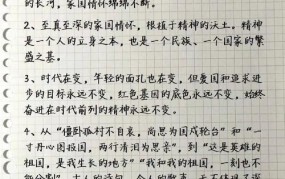 的长河，家国情怀绵绵不断。
2、至真至深的家国情怀，根植于精神的沃土。精神
是一个人的立身之本，也是一个民族、一个国家的繁盛
之基。
3、时代在变，年轻的面孔也在变，但爱国和追求进
步的目标永远不变，红色基因的底色永远不变，始终
奋进在时代前列的精神永远不变。
4、从“僵卧孤村不自哀，尚思为国戍轮台”和“一
寸丹心图报国，两行清泪为思亲”，到“这是英雄的
祖国，是我生长的地方”“我和我的祖国，一刻也不